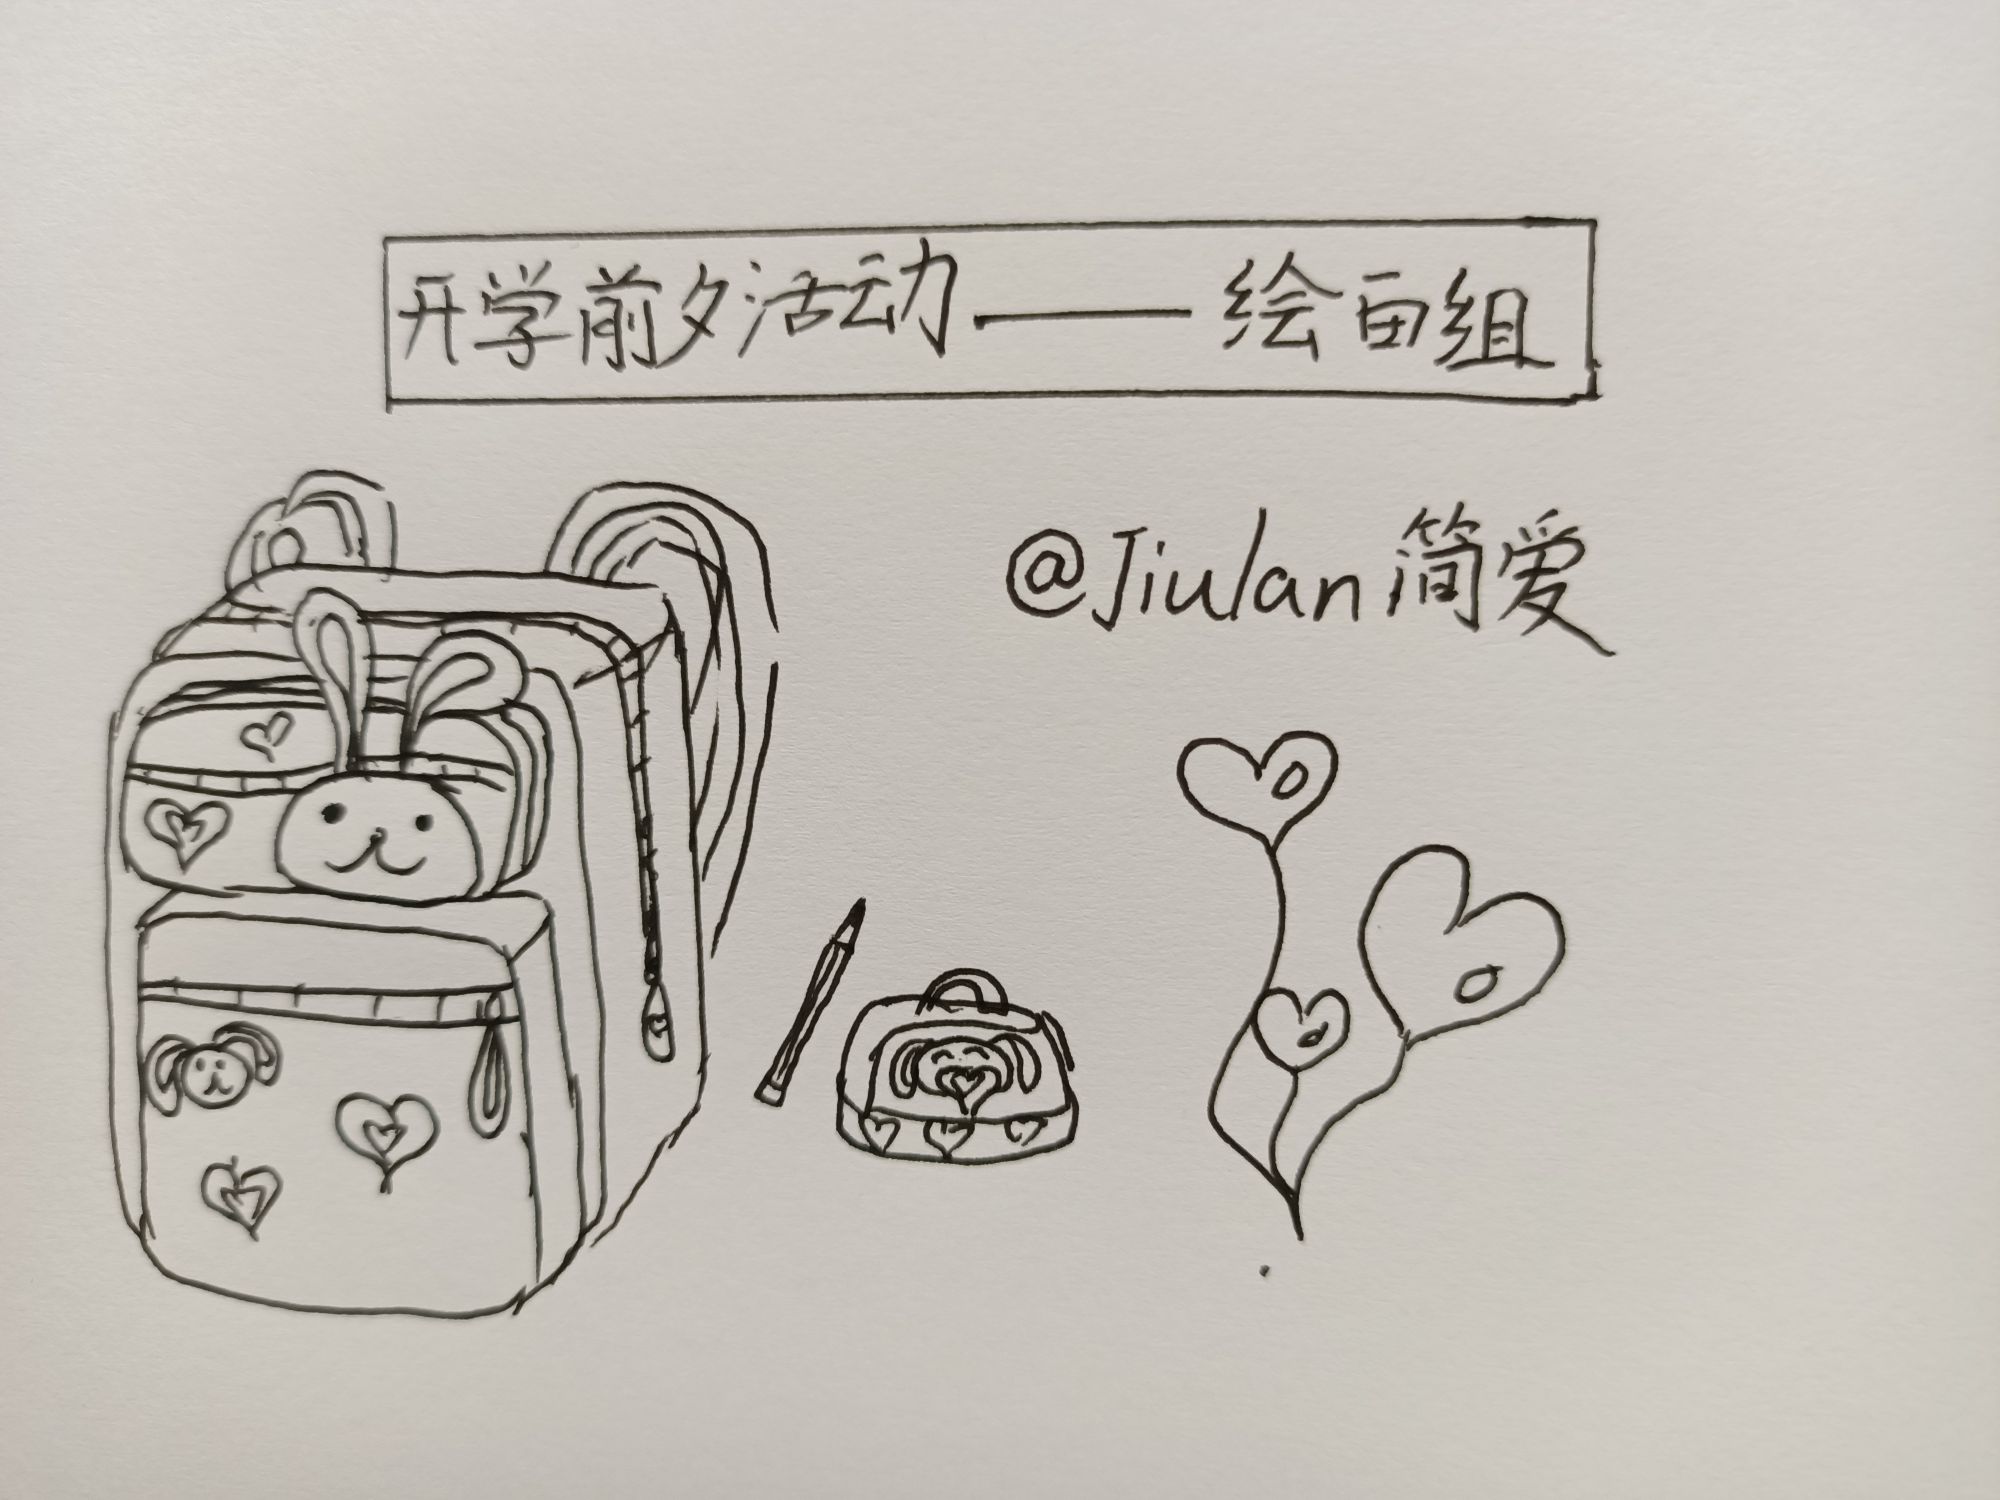 开学前夕活动——绘画组
@Jiulan简爱